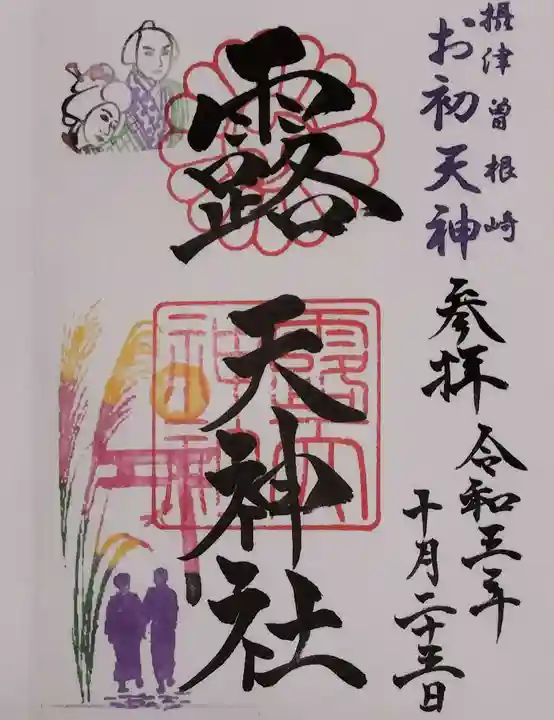 摂津曽根崎
お初天神
参拝
令和三年
十月二十三日
露
天神社